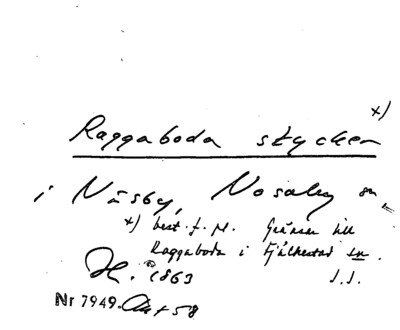 Raggaboda stycken x)
i Näsby, Nosaby sn
x) best. f. pl. Gränsar till
Raggaboda i Fjälkestad sn.
H. 1863 S.S.
Nr 7949. Akt 58